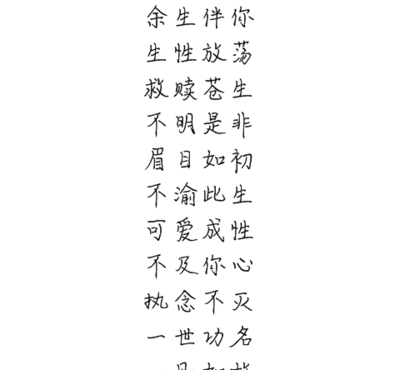 余生伴你
生性放荡
救赎苍生
不明是非
眉目如初
不渝此生
可爱成性
不及你心
执念不灭
一世功名